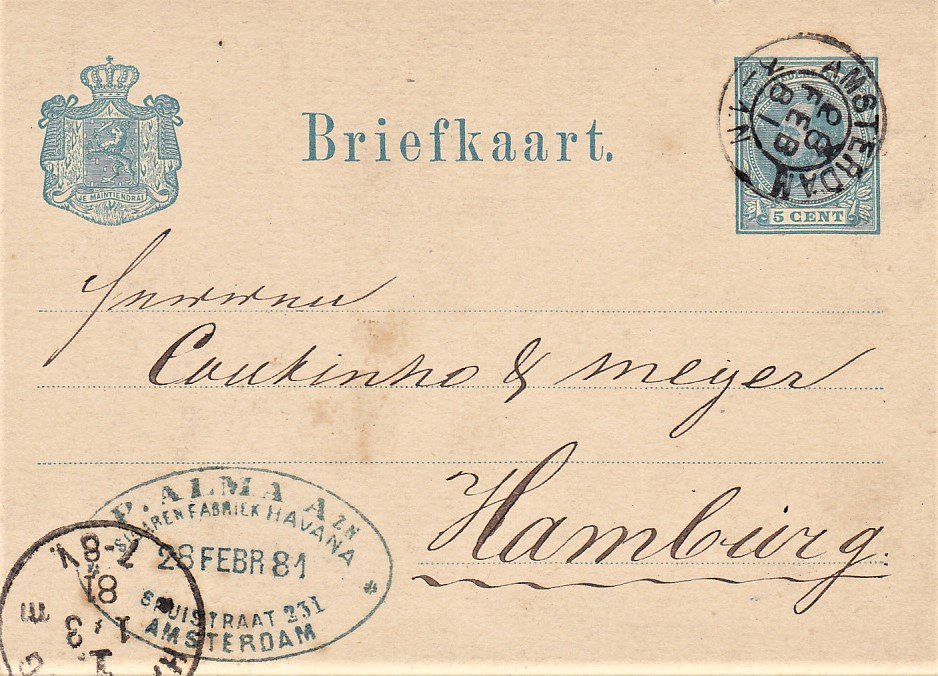 Briefkaart.
JE MAINTIENDRAI
AMSTERDAM
28
FEB
81
5 CENT
Herren
Coutinho & Meyer
Hamburg.
P. ALMA AZN
SIGARENFABRIEK HAVANA
28 FEBR 81
SPUISTRAAT 231
AMSTERDAM
7-8 V.
81
1.3